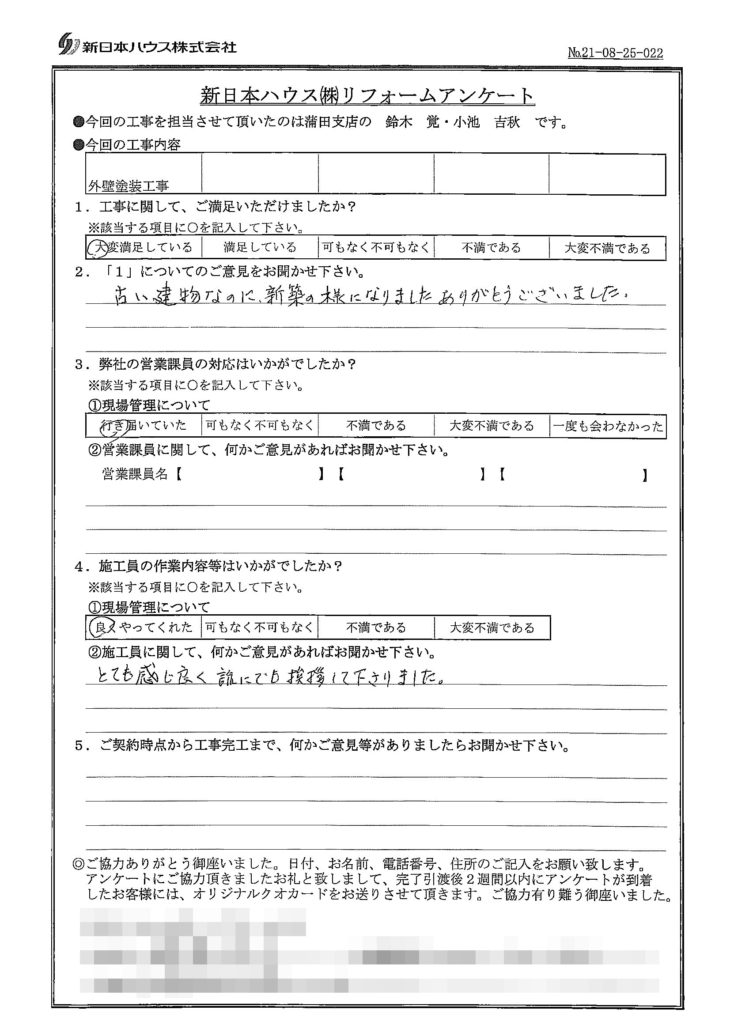 新日本ハウス株式会社
№21-08-25-022
新日本ハウス㈱リフォームアンケート
●今回の工事を担当させて頂いたのは蒲田支店の 鈴木 覚・小池 吉秋 です。
●今回の工事内容
外壁塗装工事
1．工事に関して、ご満足いただけましたか？
※該当する項目に○を記入して下さい。
大変満足している 満足している 可もなく不可もなく 不満である 大変不満である
2．「1」についてのご意見をお聞かせ下さい。
古い建物なのに、新築の様になりました ありがとうございました.
3．弊社の営業課員の対応はいかがでしたか？
※該当する項目に○を記入して下さい。
①現場管理について
行き届いていた 可もなく不可もなく 不満である 大変不満である 一度も会わなかった
②営業課員に関して、何かご意見があればお聞かせ下さい。
営業課員名【 】【 】【 】
4．施工員の作業内容等はいかがでしたか？
※該当する項目に○を記入して下さい。
①現場管理について
良くやってくれた 可もなく不可もなく 不満である 大変不満である
②施工員に関して、何かご意見があればお聞かせ下さい。
とても感じ良く 誰にでも挨拶して下さりました。
5．ご契約時点から工事完工まで、何かご意見等がありましたらお聞かせ下さい。
◎ご協力ありがとう御座いました。日付、お名前、電話番号、住所のご記入をお願い致します。
アンケートにご協力頂きましたお礼と致しまして、完了引渡後2週間以内にアンケートが到着
したお客様には、オリジナルクオカードをお送りさせて頂きます。ご協力有り難う御座いました。